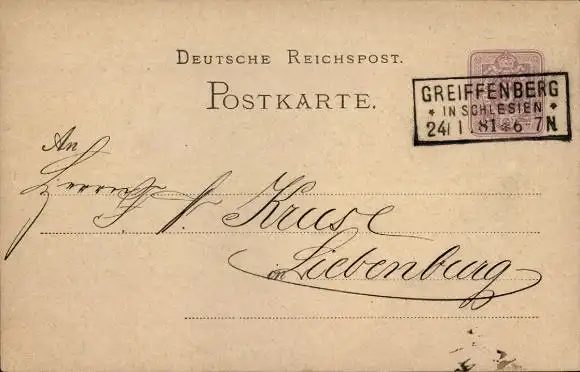 DEUTSCHE REICHSPOST.
POSTKARTE.
GREIFFENBERG
* IN SCHLESIEN *
24/1 81 * 6-7N
An
Herrn F. A. Kruse
in Liebenburg